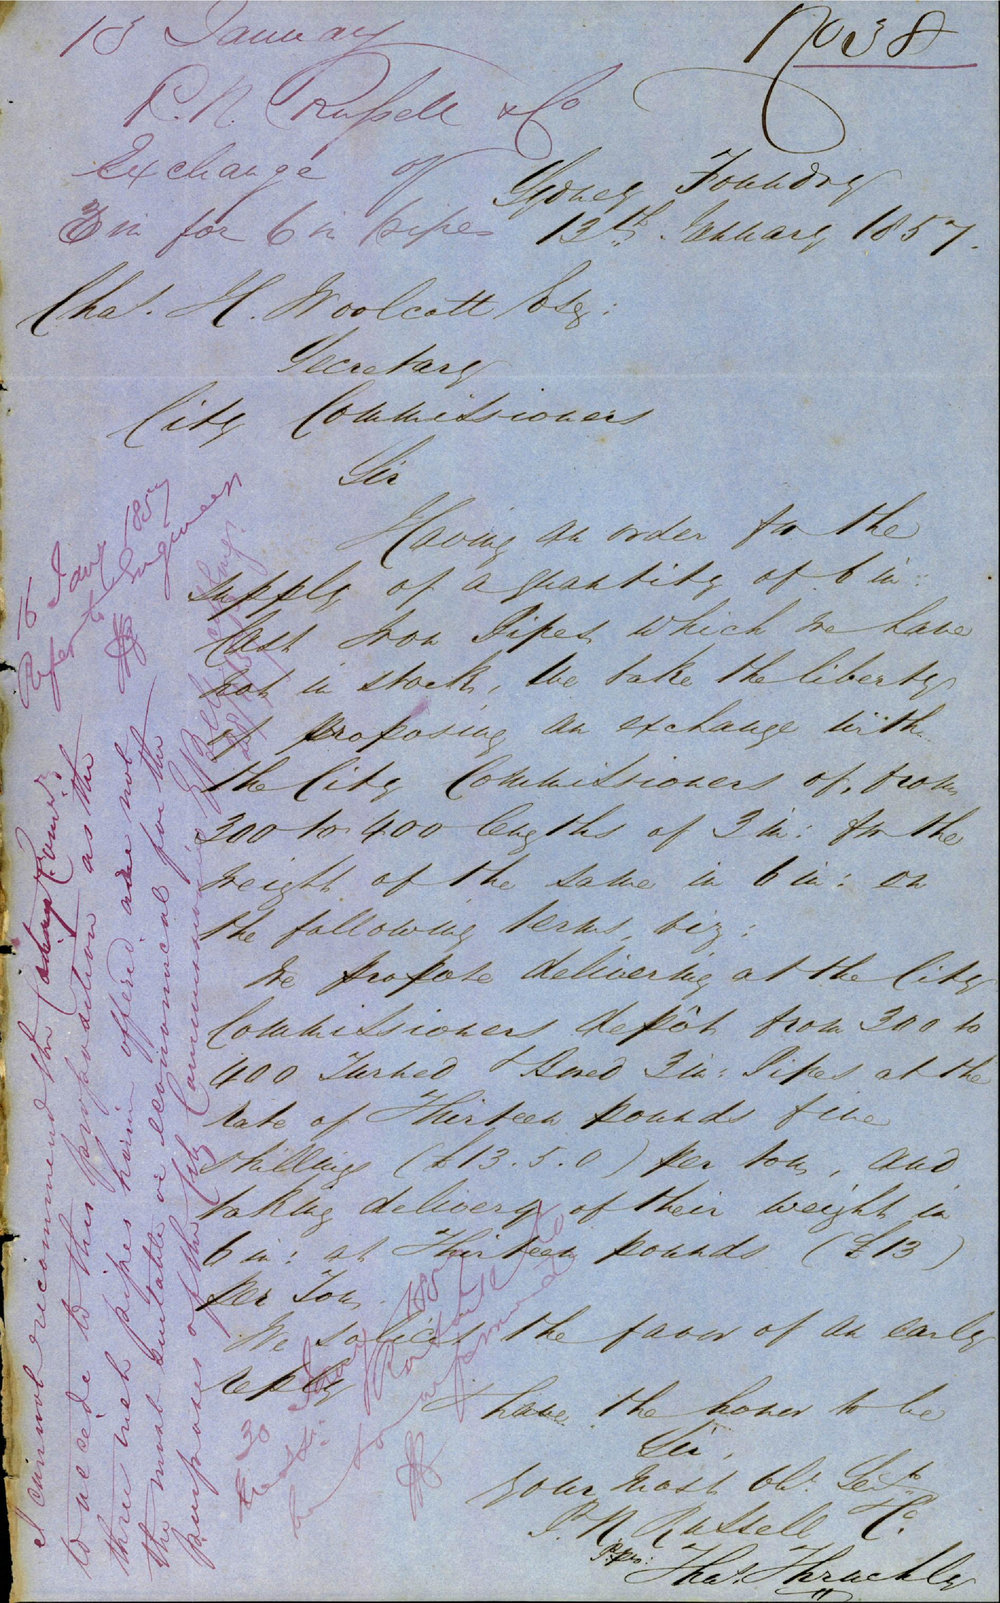 No 38
13 January
P. N. Russell & Co
Exchange of
3 in for 6 in pipes
Sydney Foundry
12th January 1857.
Chas. H. Woolcott Esq:
Secretary
City Commissioners
Sir
Having an order for the
supply of a quantity of 6 in:
Cast Iron Pipes which we have
not in stock, we take the liberty
of proposing an exchange with
the City Commissioners of, from
300 to 400 lengths of 3 in: for the
weight of the same in 6 in: on
the following terms, viz:
We propose delivering at the City
Commissioners depôt from 300 to
400 Turned & Bored 3 in: Pipes at the
rate of Thirteen pounds five
shillings (£13.5.0) per ton, and
taking delivery of their weight in
6 in: at Thirteen pounds (£13)
per Ton.
We solicit the favor of an early
reply
have the honor to be
Sir,
Your most obt. Servt.
P. N. Russell & Co.
P. pro: Thos. Thrackly
16 Jany 1857
Refer to Engineer
I cannot recommend the City Commrs
to accede to this proposition as the
three inch pipes herein offered are not
the most suitable or economical for the
purposes of the City Commissioners
30 Jany 1857
to be informed